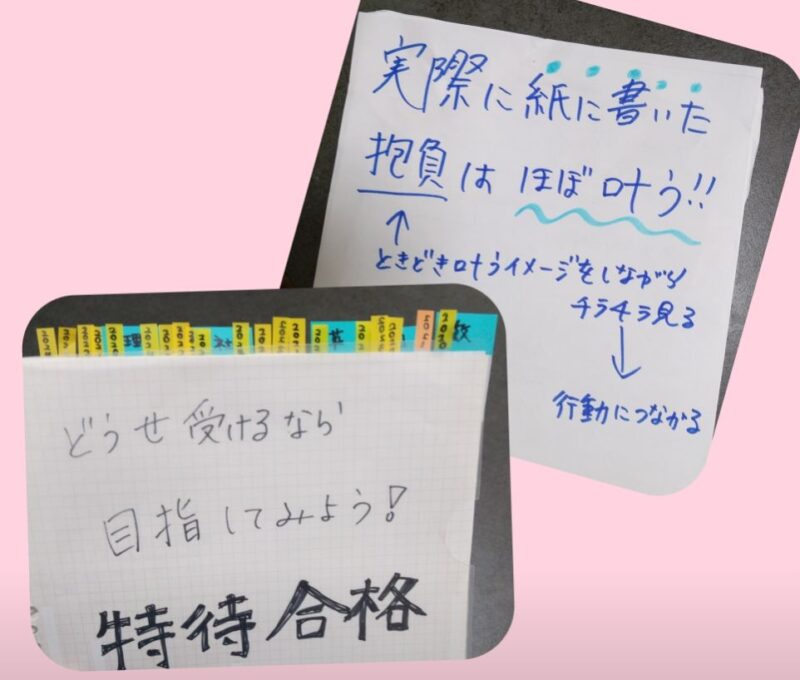 実際に紙に書いた
抱負は ほぼ叶う!!
↑
ときどき叶うイメージをしながら
チラチラ見る
↓
行動につながる
理
社
英
数
どうせ受けるなら
目指してみよう!
特待合格